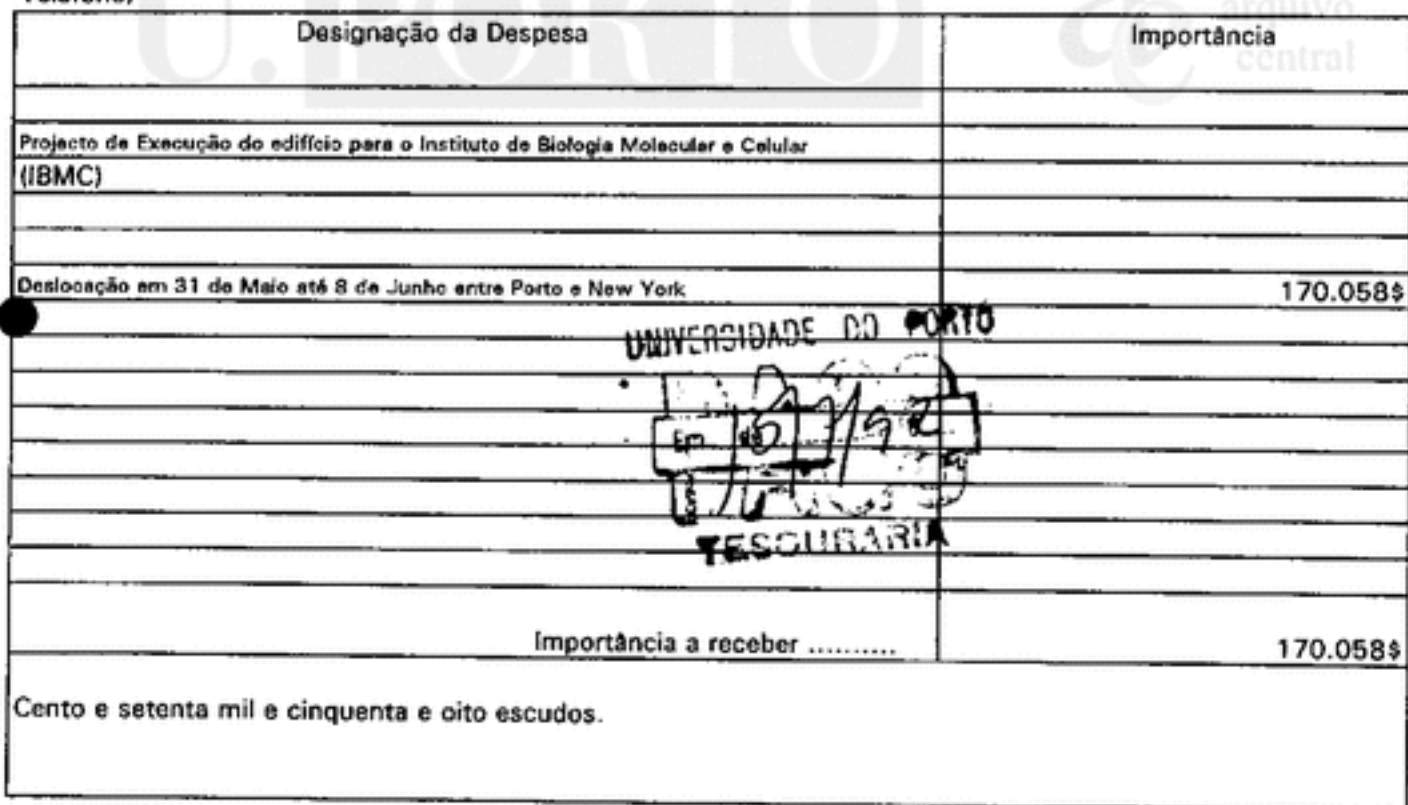 U.PORTO
arquivo
central
Designação da Despesa
Importância
Projecto de Execução do edifício para o Instituto de Biologia Molecular e Celular
(IBMC)
Deslocação em 31 de Maio até 8 de Junho entre Porto e New York
170.058$
UNIVERSIDADE DO PORTO
Em
TESOURARIA
Importância a receber ..........
170.058$
Cento e setenta mil e cinquenta e oito escudos.